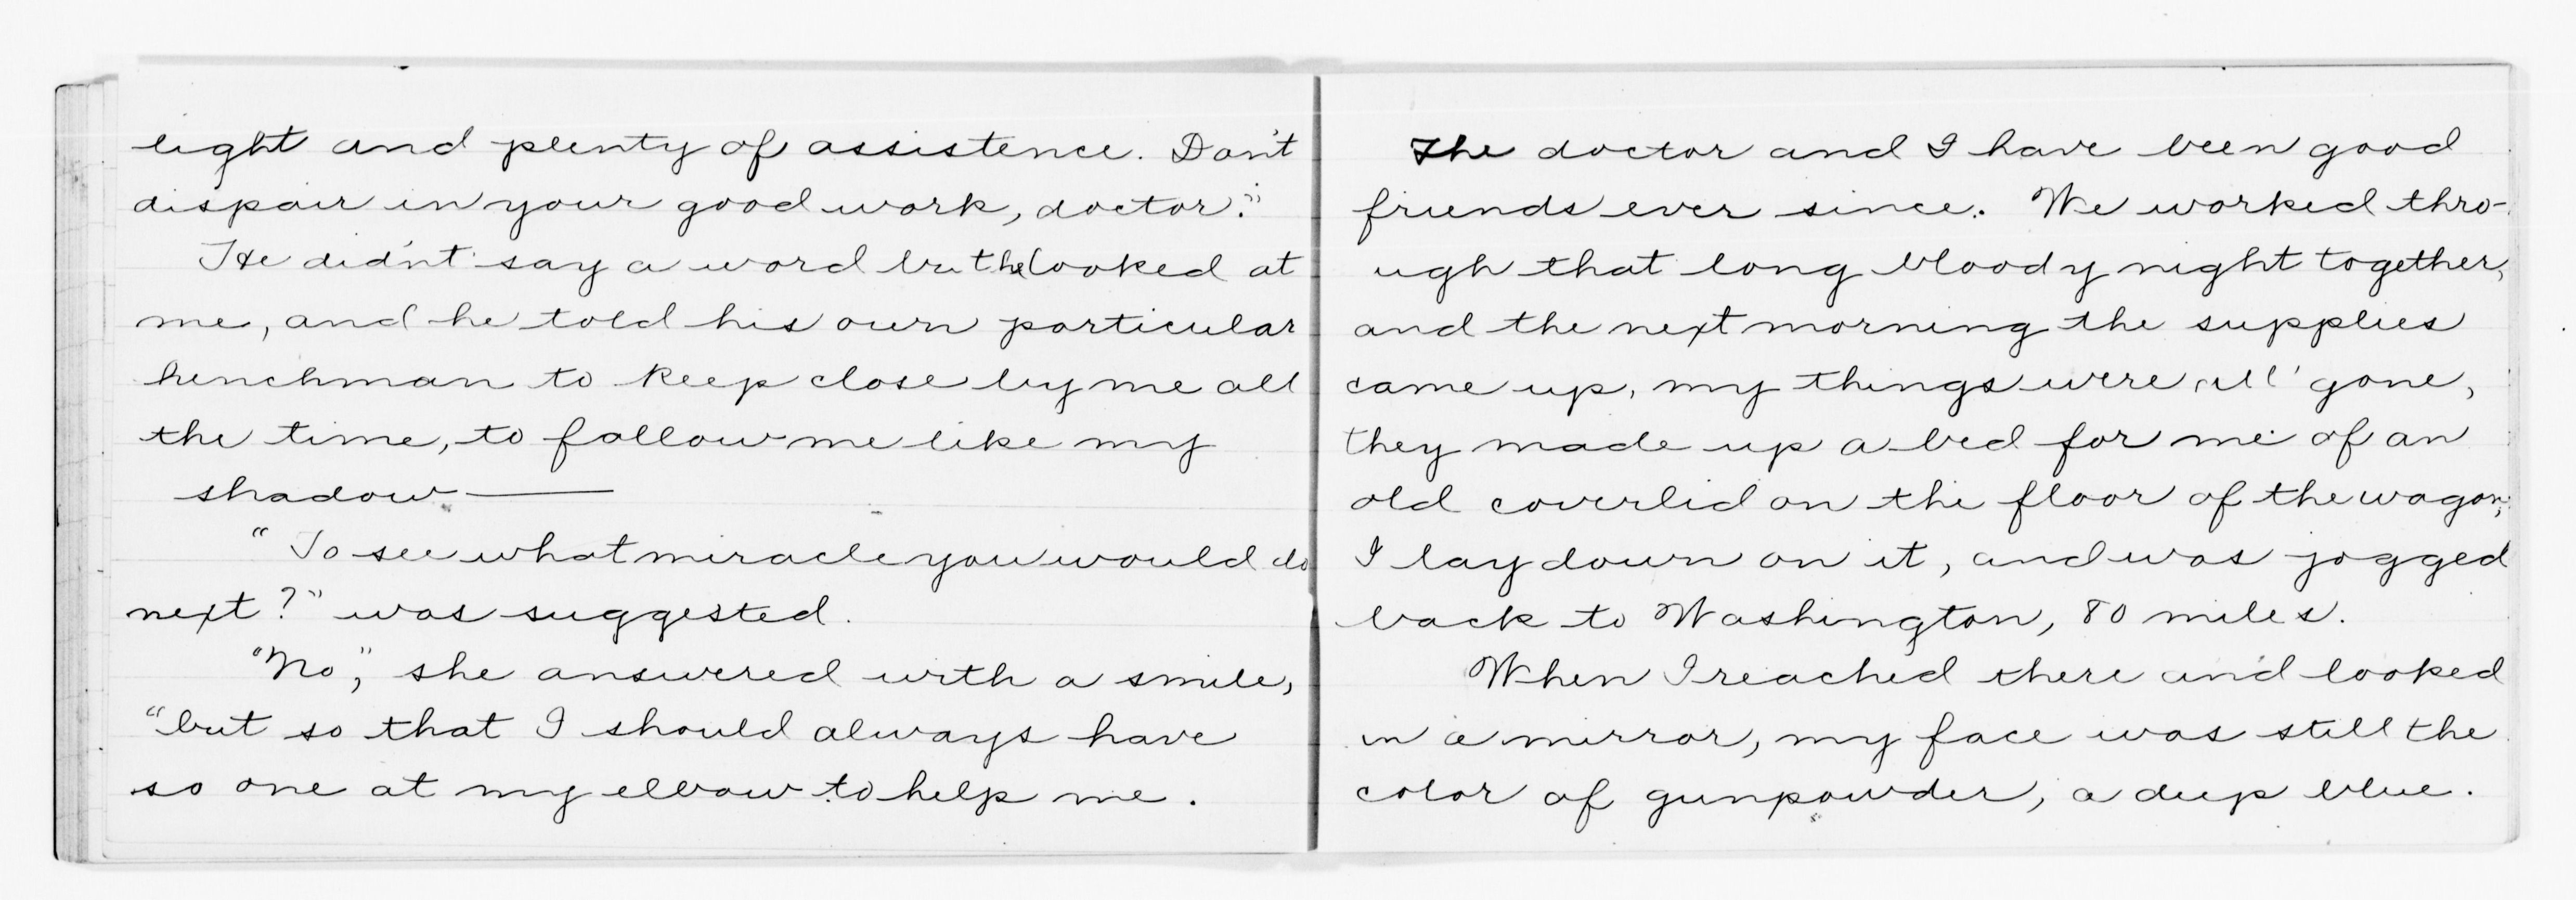 light and plenty of assistence. Don't
dispair in your good work, doctor."
He didn't say a word but he looked at
me, and he told his own particular
henchman to keep close by me all
the time, to follow me like my
shadow —
"To see what miracle you would do
next?" was suggested.
"No," she answered with a smile,
"but so that I should always have
so one at my elbow to help me.
The doctor and I have been good
friends ever since. We worked thro-
ugh that long bloody night together,
and the next morning the supplies
came up, my things were all gone,
they made up a bed for me of an
old coverlid on the floor of the wagon,
I lay down on it, and was jogged
back to Washington, 80 miles.
When I reached there and looked
in a mirror, my face was still the
color of gunpowder, a deep blue.